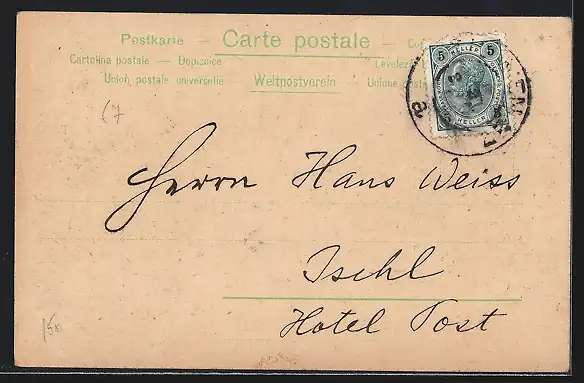 Postkarte — Carte postale —
Cartolina postale — Dopisnice
Union postale universelle — Weltpostverein — Unione
5 HELLER 5
HELLER
(7
Herrn Hans Weiss
Ischl
Hotel Post